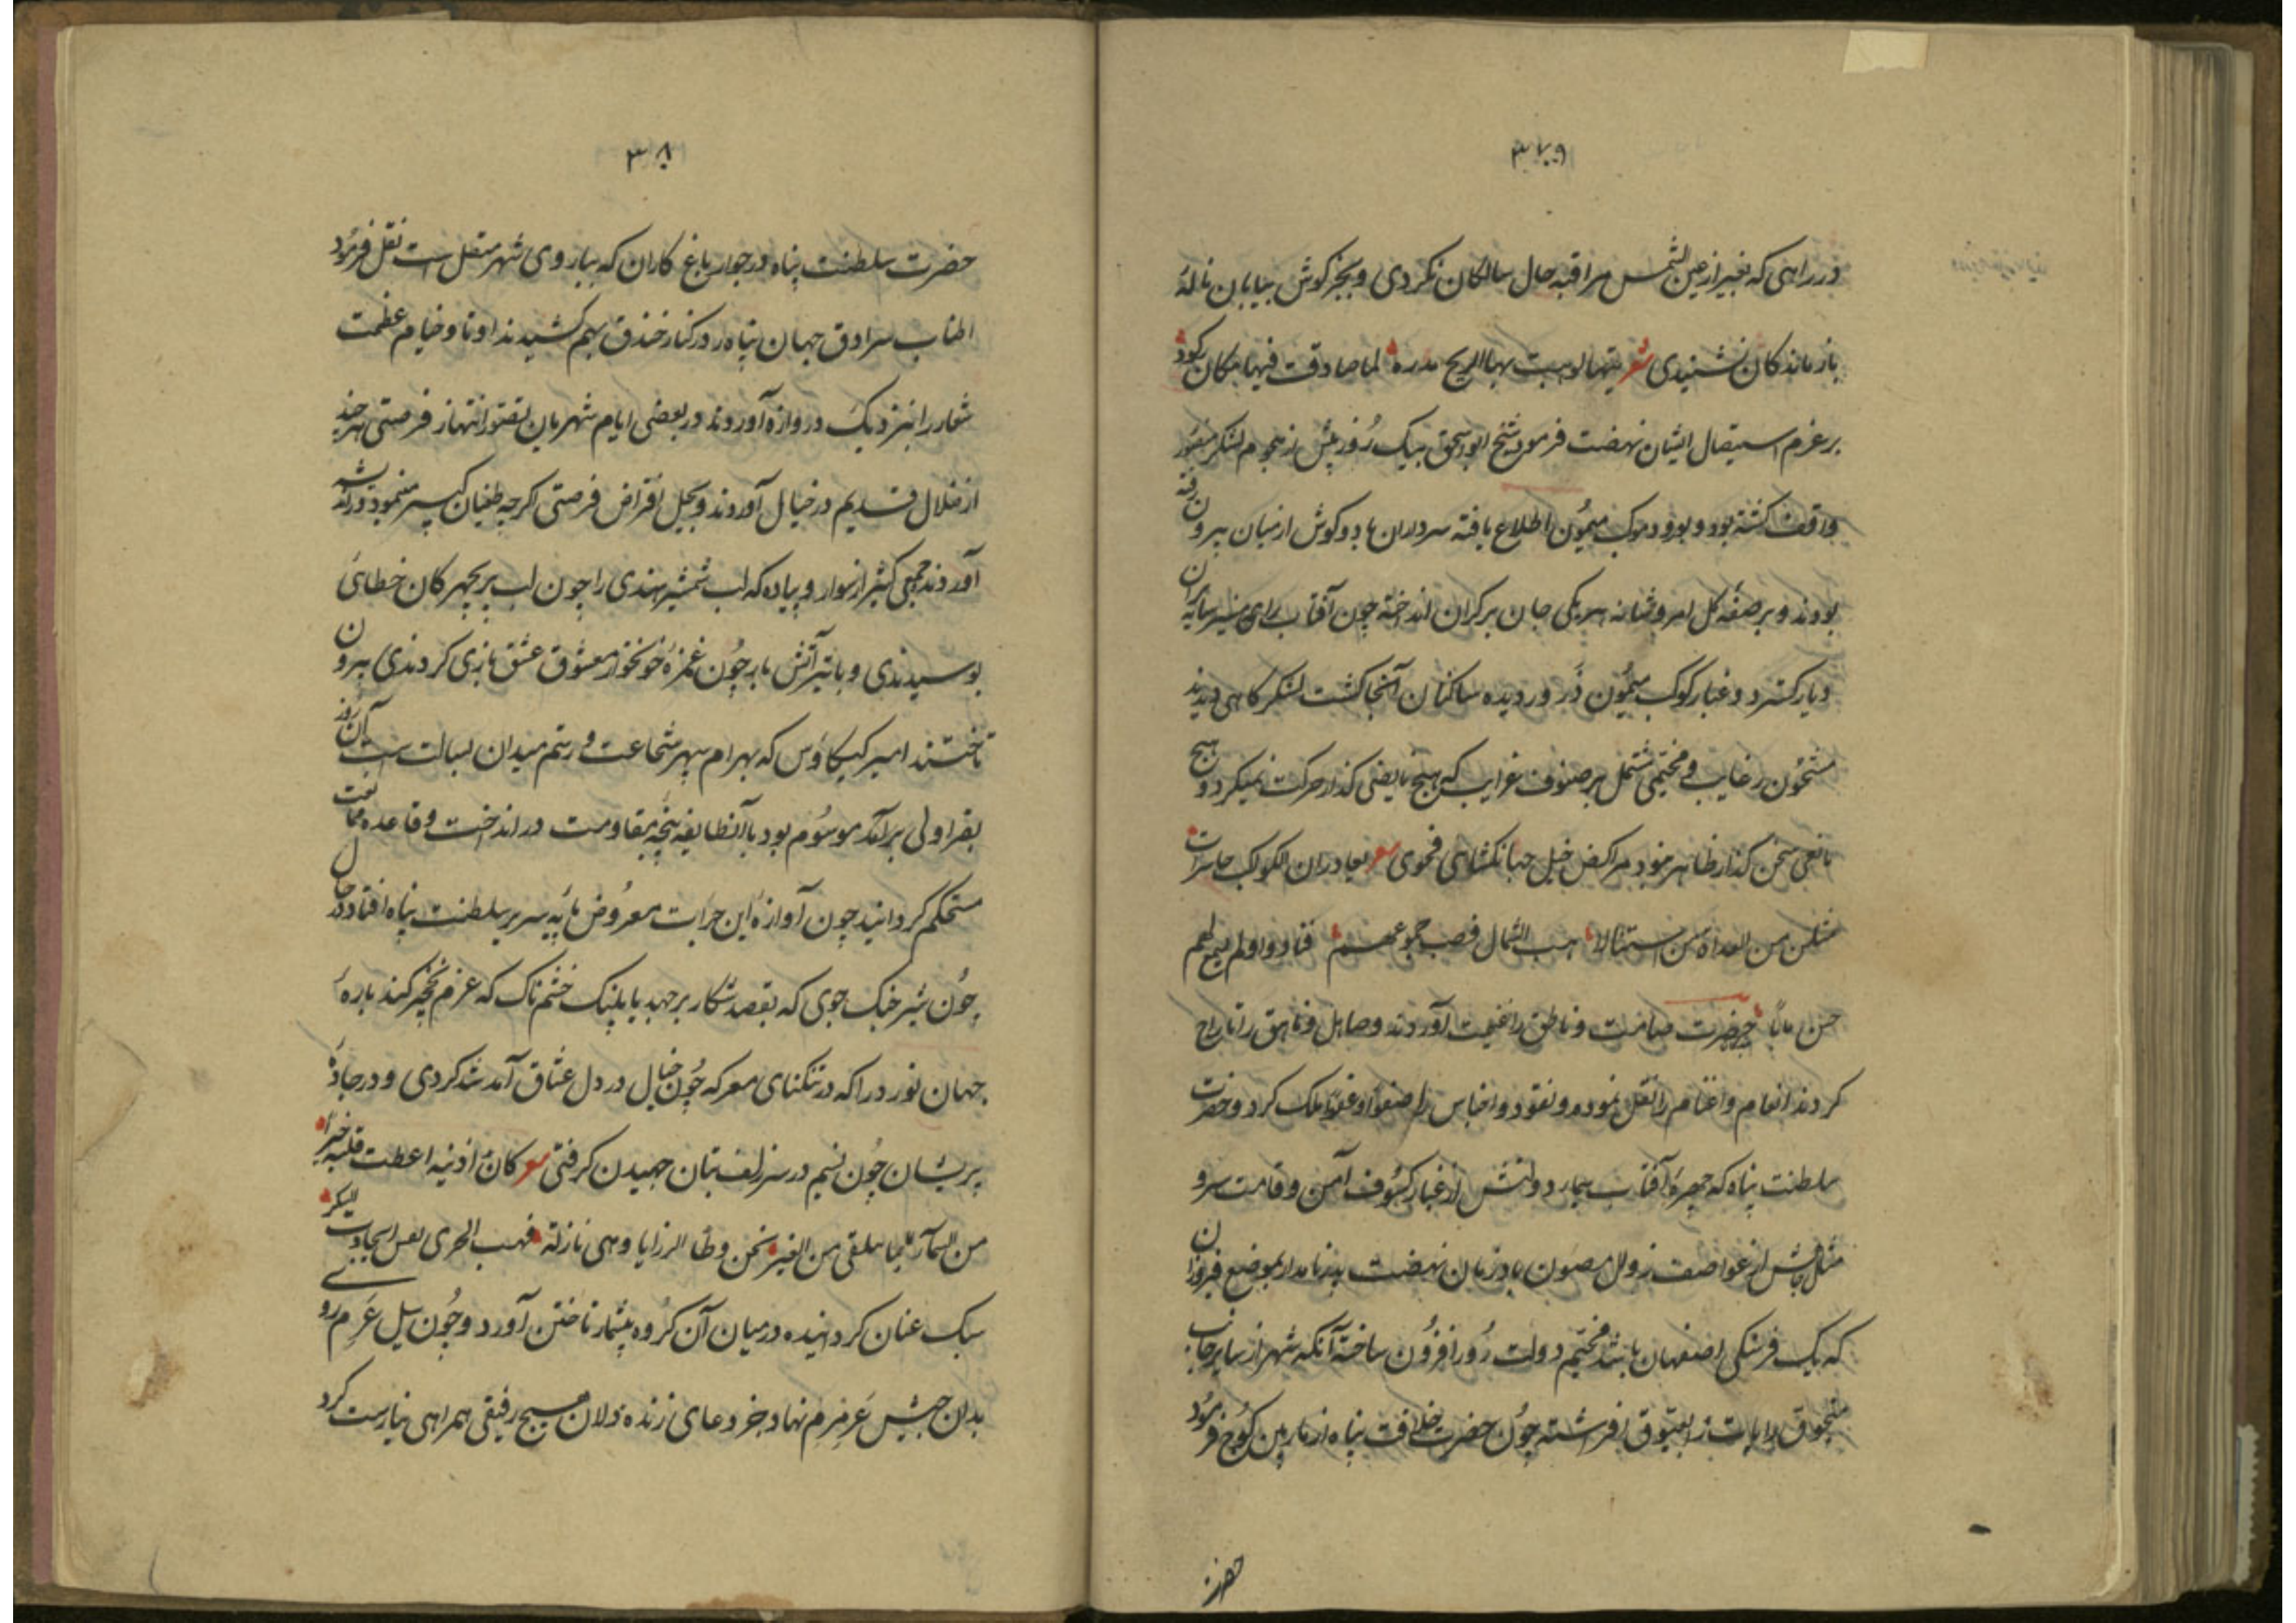 ۳۷۹
در راهی که بغیر از عین الشمس مراقبه حال سالکان نکردی و بجز کوش بیابان ناله
بازماندکان نشنیدی شعر بها الریح لما صادقت فیها مکان
بر عزم استیصال ایشان نهضت فرمود شیخ ابو اسحق بیک روز پیش از هجوم لشکر منصور
واقف کشته بود و بورود موکب میمون اطلاع یافته سرداران با دو کوش از میان بیرون رفته
بودند و بر صفه کل امرو هر یکی جان بر کران انداخته چون آفتاب رای منیر سایه بران
دیار کسترد و غبار کوکب میمون ذرور دیده ساکنان آنجا کشت لشکرکاهی دیدند
مشحون رغایب و مخیمی مشتمل بر صنوف غرایب که هیچ کذار حرکت نمیکرد و هیچ
سخن کذار ظاهر نبود مراکض خیل جهانکشاهی فحوی شعر یغادران الکواکب حاسرات
من العداة من استنالا هب الشمال فصب جموعهم فنادوا ولم لهم
حضرت صامت و ناطق را غنیمت آوردند و صاهل و ناهق را تاراج
کردند انعام و اغنام را نقل نموده و نقود و اجناس را صفوا و عفوا ملک کرد و حضرت
سلطنت پناه که چهره آفتاب دولتش از غبار کسوف آمن و قامت سرو
مثالش از عواصف زوال مصون باد زمان نهضت پدر نامدار بموضع فیروزان
که یک فرسنکی اصفهان باشد مخیم دولت روز افزون ساخته آنکه شهر از سایر جانب
منجوق رایات را بعیوق افراشته چون حضرت خلافت پناه از مارین کوچ فرمود
حضرت
۳۸۰
حضرت سلطنت پناه در جوار باغ کاران که بباروی شهر متصل است نقل فرمود
اطناب سرادق جهان پناه در کنار خندق بهم کشیدند اوتاد خیام عظمت
شعار را نزدیک دروازه آوردند در بعضی ایام شهریان بتصور انتهاز فرصتی هر چند
از ضلال قدیم در خیال آوردند و بخیل افتراض فرصتی اکرچه طغیان
آوردند جمعی کثیر از سوار و پیاده که لب شمشیر هندی را چون لب پریچهرکان خطائی
بوسیدندی و با تیر آتش بار چون غمزه خونخوار معشوق عشق بازی کردندی بیرون
تاختند امیر کیکاوس که بهرام سپهر شجاعت و رستم میدان بسالت است آن روز
بقراولی برآمد موسوم بود با آن طایفه پنجه مقاومت در انداخت و قاعده ممانعت
مستحکم کردانید چون آوازه این جرات معروض پایه سریر سلطنت پناه افتاد در حال
چون شیر جنک جوی که بقصد شکار برجهد یا پلنک خشم ناک که عزم نخجیر کند باره
جهان نورد را که در تنکنای معرکه چون خیال در دل عشاق آمد شد کردی و در جاده
پریشان چون نسیم در سر زلف بتان جهیدن کرفتی شعر کان اذنیه اعطت قلبه خبرا
من السماء بما یلقی من الغیر نحن وطا الرزایا وهی نازلة فهب الجری
سبک عنان کردانیده در میان آن کروه بیشمار تاختن آورد و چون سیل عرم روی
بدان جیش عرمرم نهاد و جز دعای زنده دلان هیچ رفیقی همراهی نیارست کرد